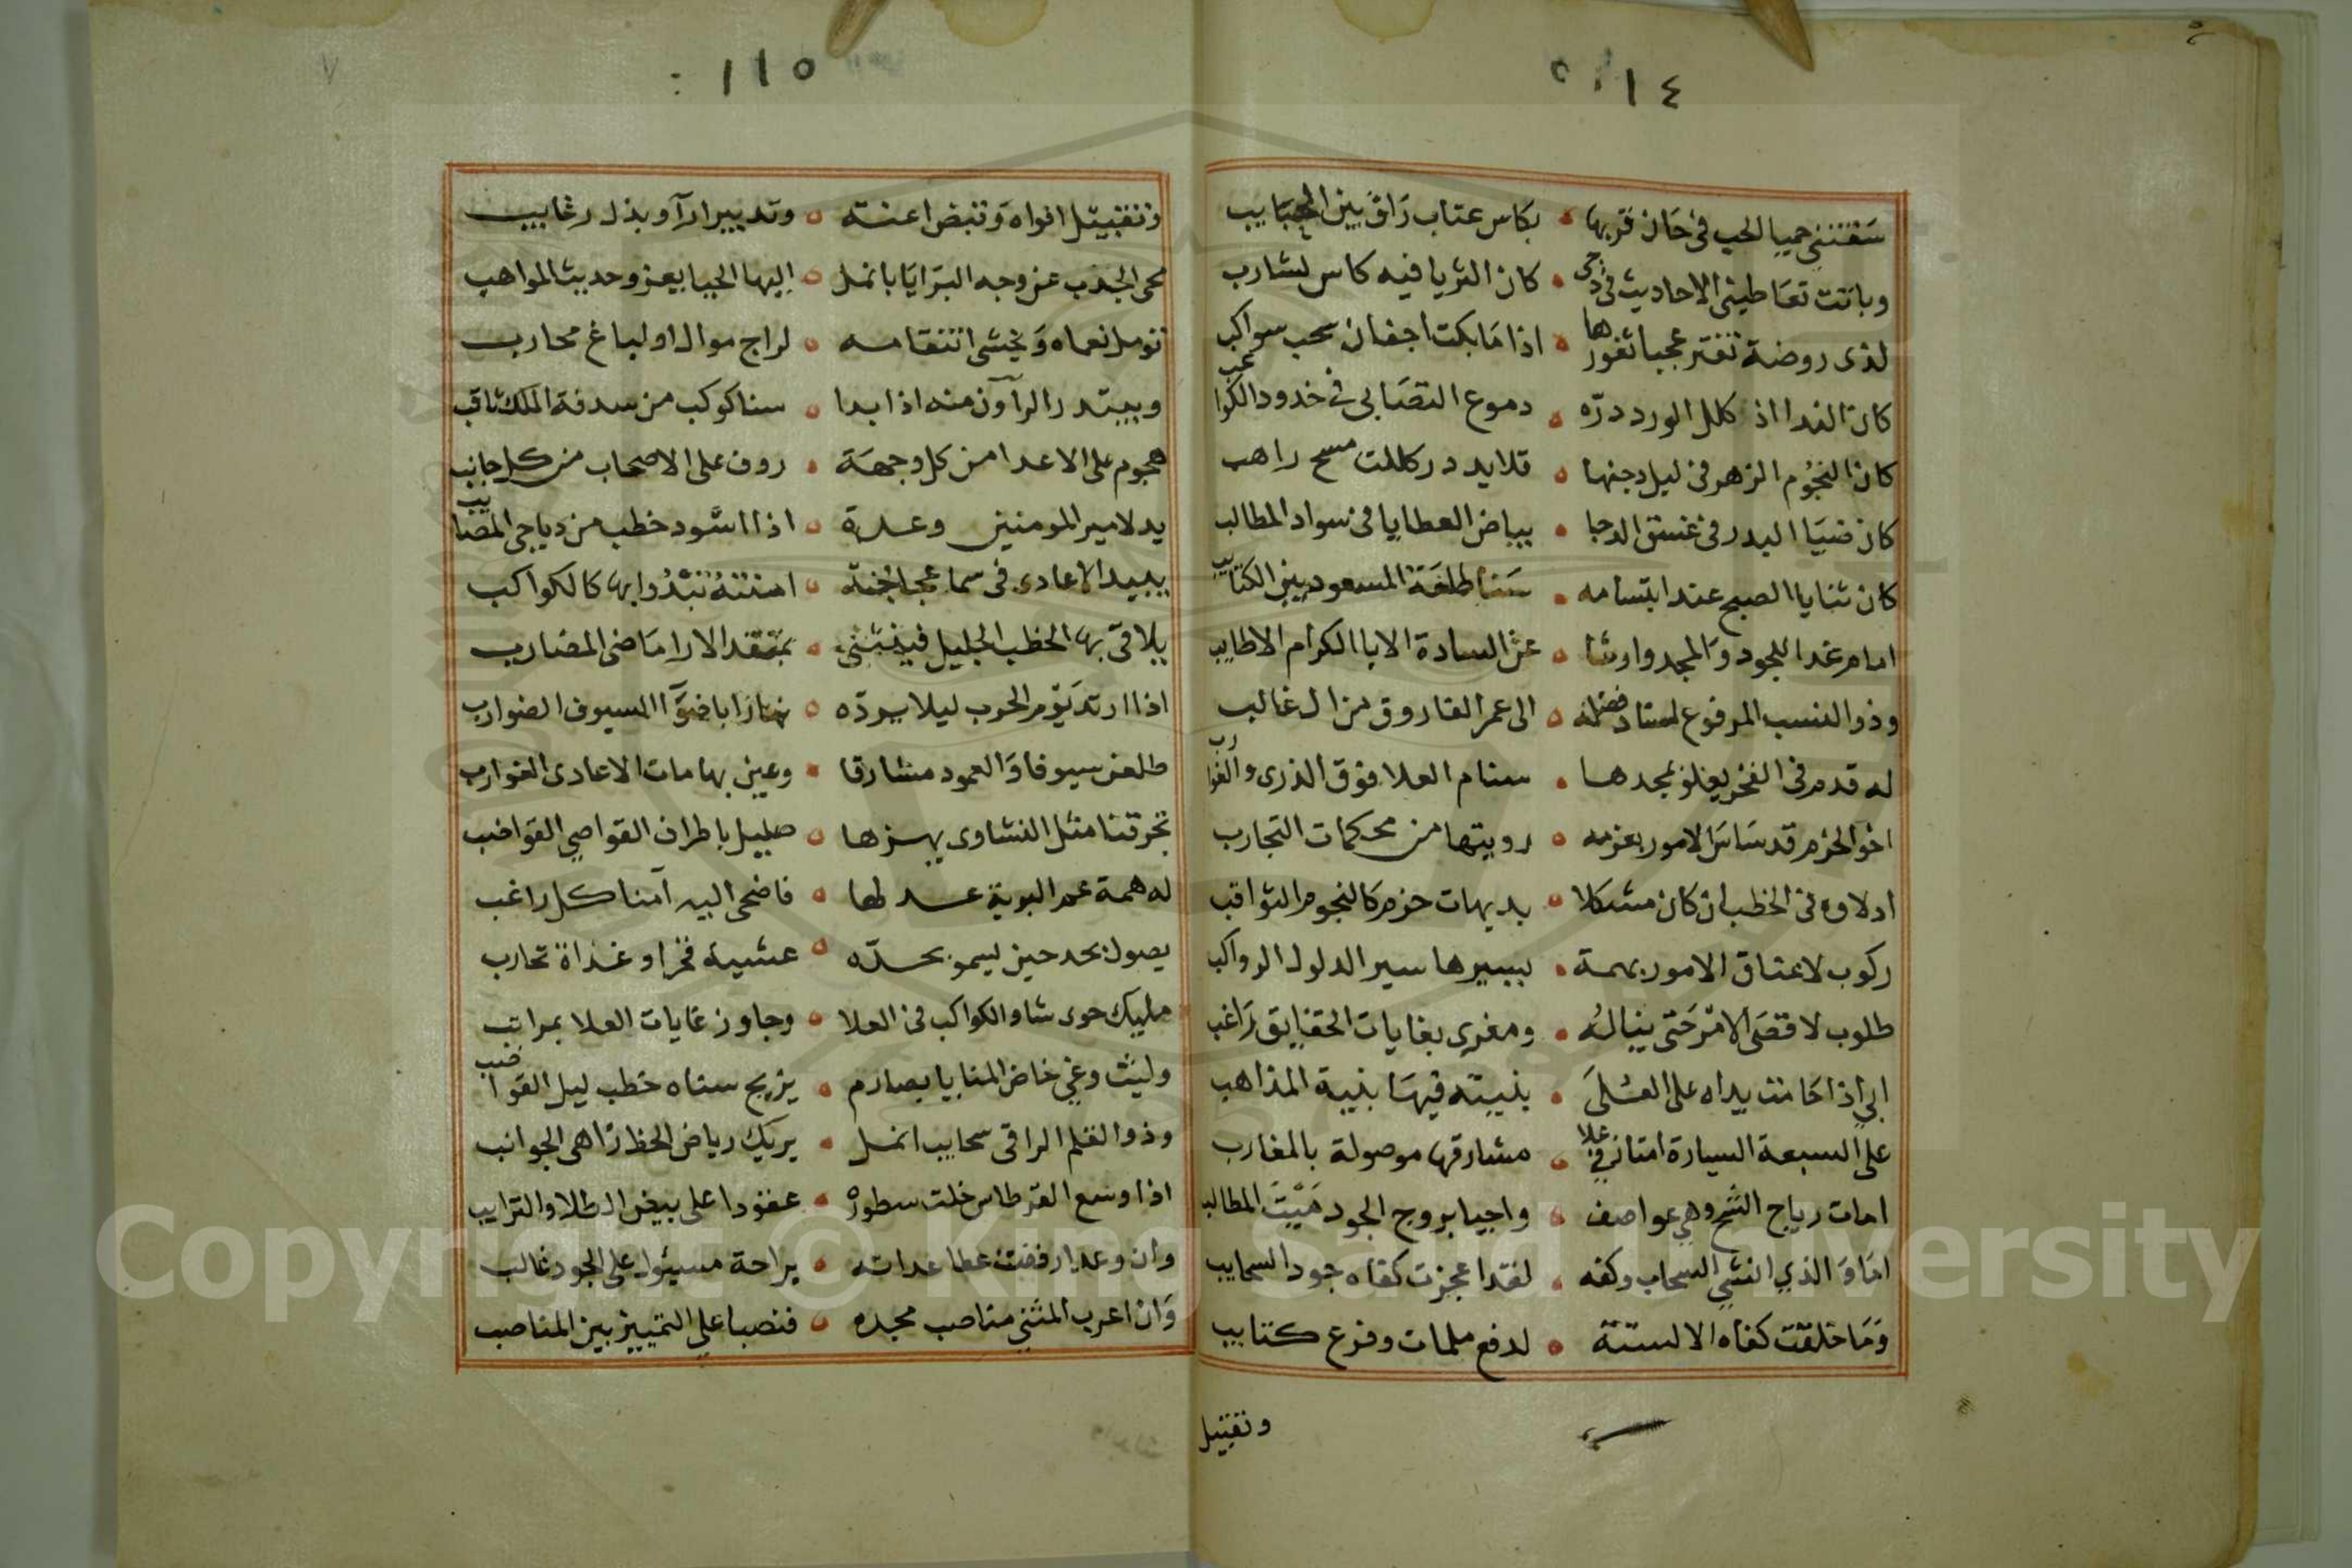 ١١٤
سَقتنني حميا الحب في حَان قربها • بكاس عتاب رَاق بين الحبَايب
وباتت تعَاطيني الاحاديث في دجى • كان الثريا فيه كاس لشارب
لذى روضة تفتر عجبا ثغورها • اذا مَا بكت اجفان سحب سواكب
كان الندا اذ كلل الورد درّه • دموع التصَابي في خدود الكواعب
كان النجُوم الزهر في ليل دجنها • قلايد در كللت مسح راهب
كان ضيَا البدر في غسق الدجا • بياض العطايا في سواد المطالب
كان ثنايا الصبح عند ابتسامه • سَنا طلعَة المسعود بين الكتايب
امام غدا للجود وَالمجد وارثا • عن السادة الابا الكرام الاطايب
وذو النسب المرفوع اسناد فضله • الى عمر الفاروق من ال غالب
له قدم في الفخر يعلو بمجدها • سنام العلا فوق الذرى والغوارب
اخو الحزم قد سَاسَ الامور بعزمه • رويتها من محكمات التجارب
ادلاوه في الخطب ان كان مشكلا • بديهات حزم كالنجوم الثواقب
ركوب لاعناق الامور بهمة • يسيرها سير الدلول الرواكب
طلوب لاقصَى الامْر حَتى ينالهُ • ومغرى بغايات الحقايق رَاغب
ابي اذا حَامت يداه على العُلَى • بنيته فيهَا بنية المذاهب
على السبعة السيارة امتاز في علا • مشارقها موصولة بالمغارب
امات رياح الشح وهي عواصف • واحيا بروح الجود مَيْتَ المطالب
امَا وَالذي انشي السحاب وكفه • لقد اعجزت كفاه جود السحايب
وَمَا خلقت كفاه الا لستة • لدفع ملمات وفزع كتايب
وتقبيل
١١٥
وتقبيل افواه وَقبض اعنة • وتدبير ارآ وبذل رغايب
محى الجدب عن وجه البرَايَا بانمل • اليها الحيا يعزو حديث المواهب
تومل نعماه وَيخشى انتقامه • لراج موال او لباغ محارب
ويبتدر الرآون منه اذا بدا • سنا كوكب من سدفة الملك ثاقب
هجوم على الاعدا من كل وجهة • روف على الاصحاب من كل جانب
يد لامير المومنين وعدة • اذا اسّود خطب من دياجي المصايب
يبيد الاعادى في سما عجاجة • اسنته تبدُوا بها كالكواكب
يلاقى بها الخطب الجليل فينثني • بمتقد الارا مَاضى المضارب
اذا ارتد يَوم الحرب ليلا يردّه • نهارا باضوَا السيوف الضوارب
طلعن سيوفا وَالعمود مشارقا • وغين بهامات الاعادى الغوارب
تجر قنا مثل النشاوى يهزها • صليل باطراف القواصي القواضب
له همة عم البرية عدلها • فاضحى اليه آمنا كل راغب
يصول بحد حين يسمو بحدّه • عشية فخر او غداة تحارب
مليك حوى شاو الكواكب في العلا • وجاوز غايات العلا بمراتب
وليث وغي خاض المنايا بصارم • يزيح سناه خطب ليل القواضب
وذو القلم الراقى سحايب انمل • يريك رياض الحظ زاهى الجوانب
اذا وسع القرطاس خلت سطوره • عقودا على بيض الطلا والترايب
وان وعدا رففت عطا عداته • براحة مسيئول على الجود غالب
وَان اعرب المثني مناصب مجده • فنصبا على التمييز بين المناصب
Copyright © King Saud University